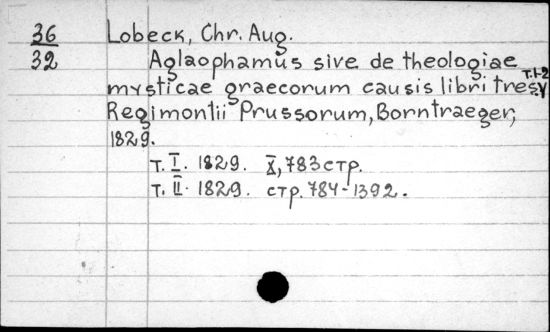 36
32
Lobeck, Chr. Aug.
Aglaophamus sive de theologiae
mysticae graecorum causis libri tres. т. 1-2
Regimontii Prussorum, Borntraeger,
1829.
т. I. 1829. X, 783 стр.
т. II. 1829. стр. 784-1392.